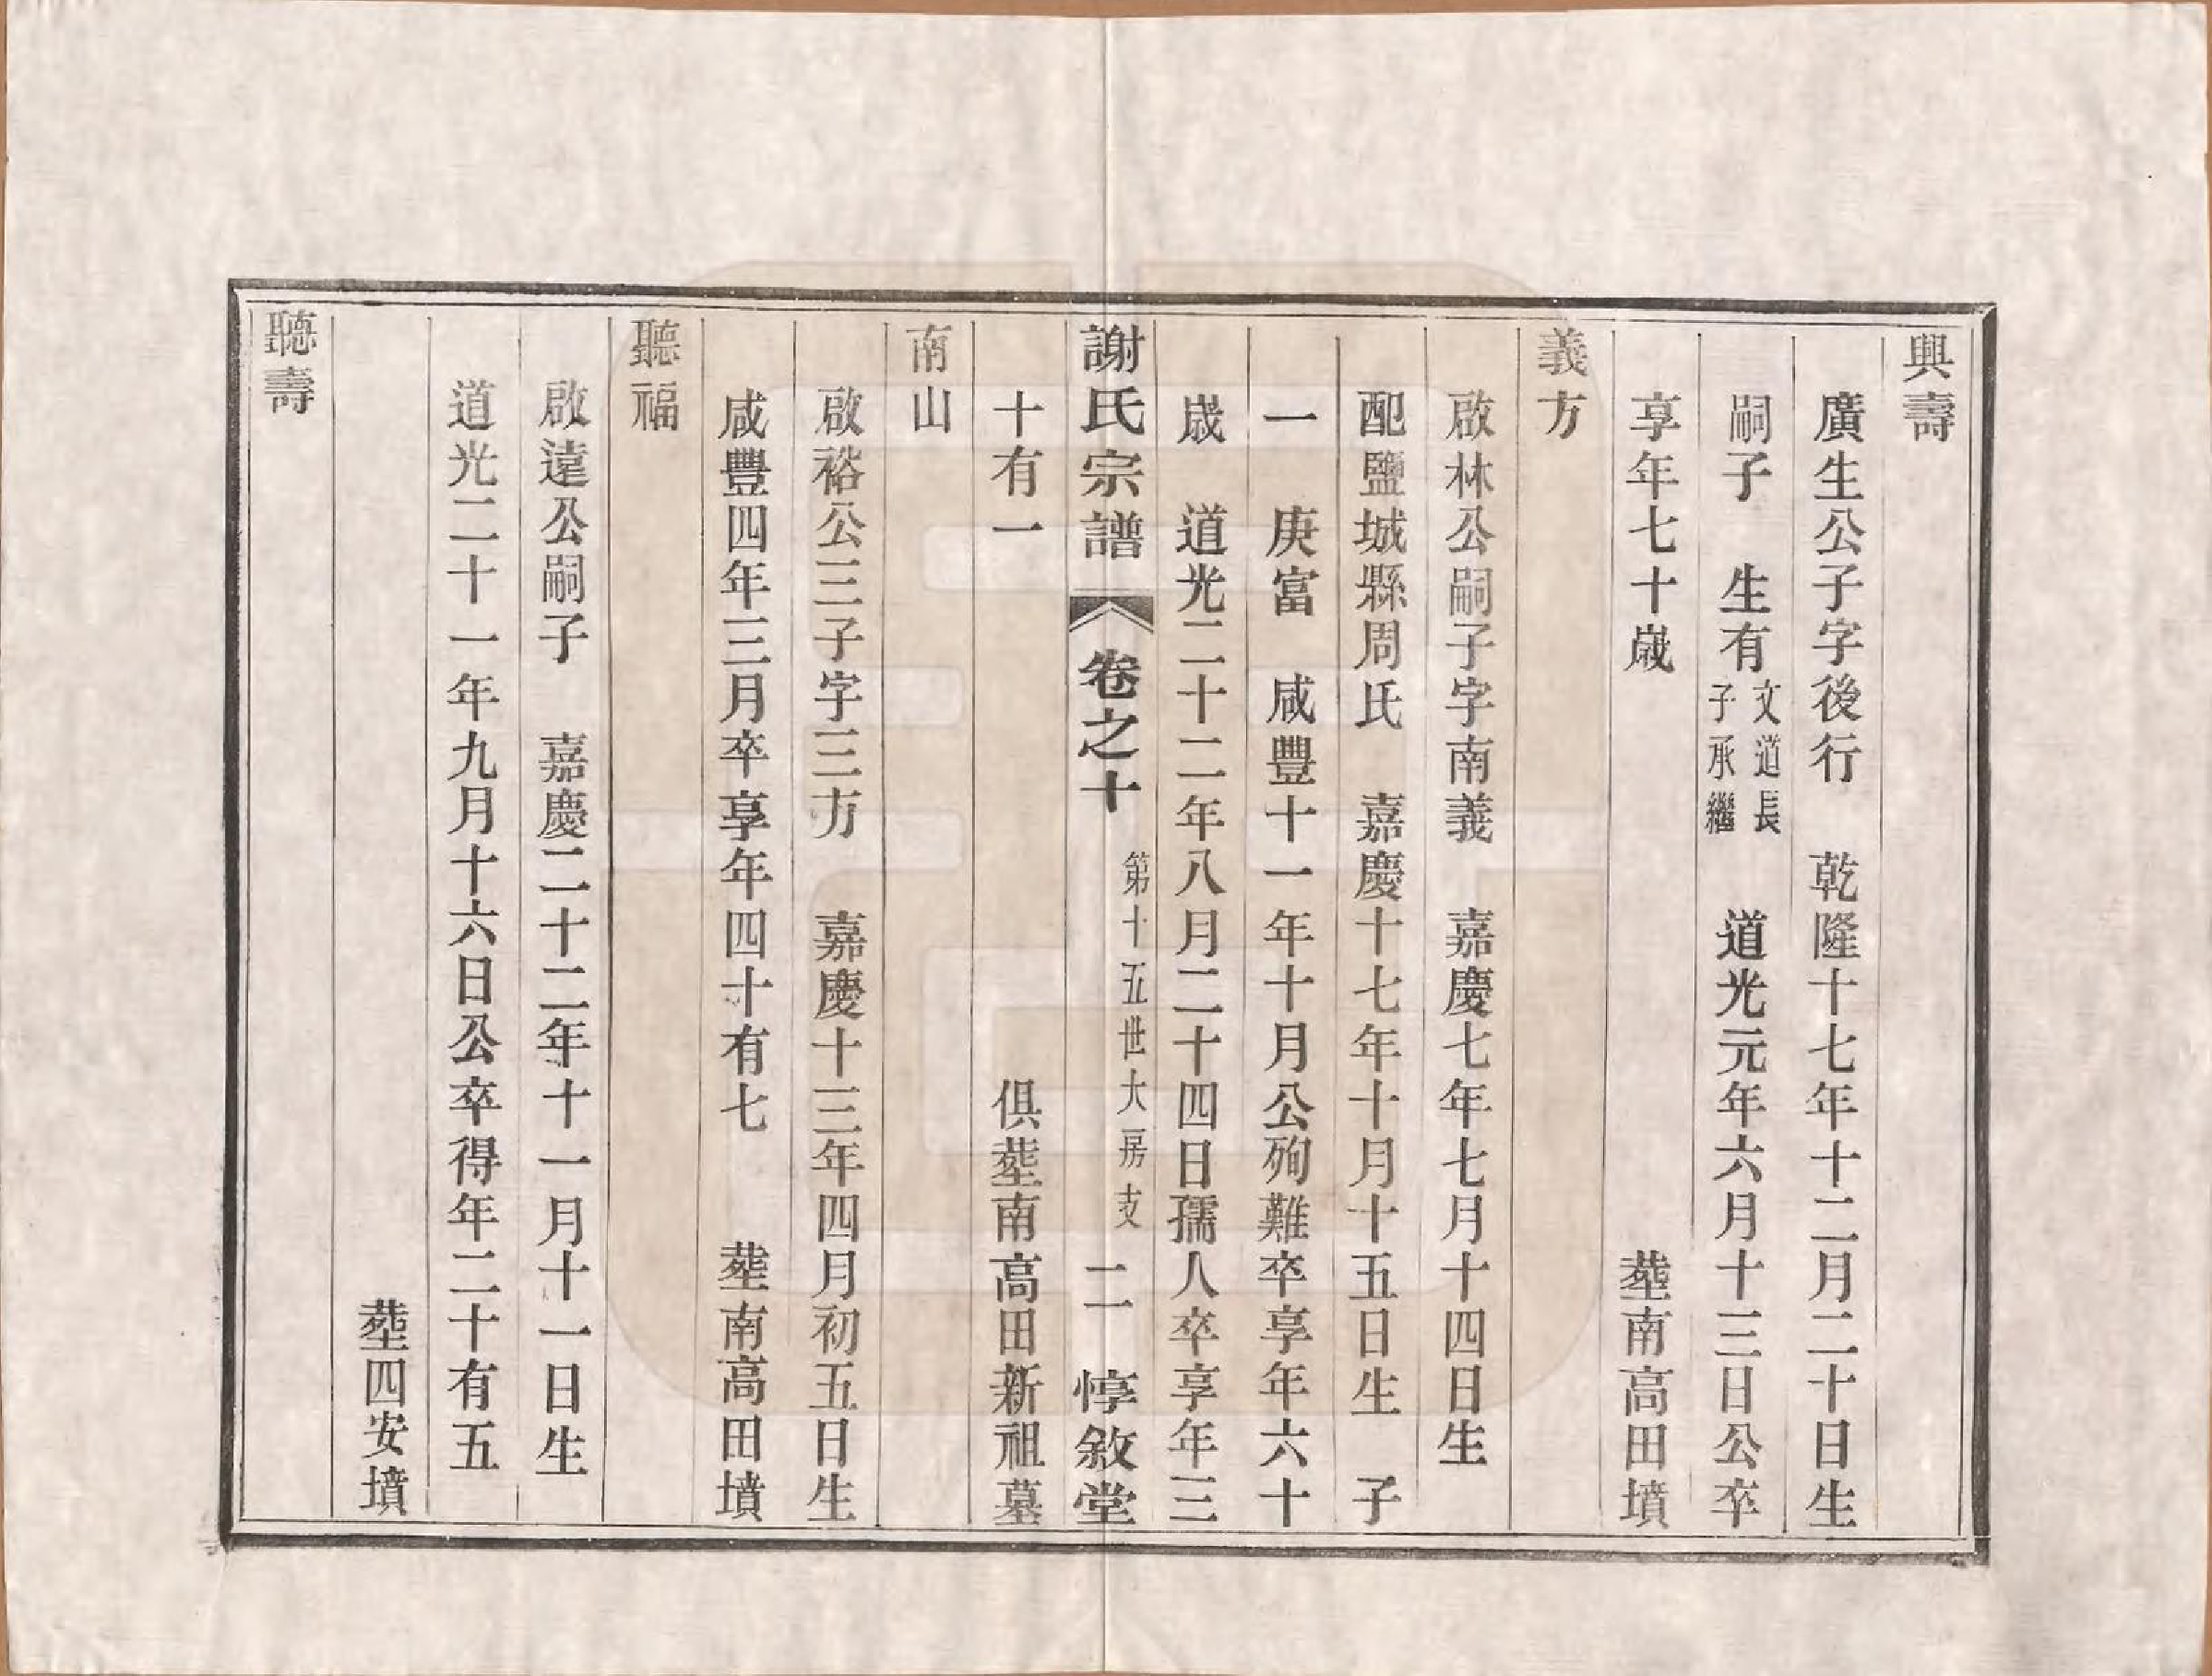 興壽
廣生公子字後行　乾隆十七年十二月二十日生
嗣子　生有文道長子承繼　道光元年六月十三日公卒
享年七十歲　塟南高田墳
義方
啟林公嗣子字南義　嘉慶七年七月十四日生
配鹽城縣周氏　嘉慶十七年十月十五日生　子
一　庚富　咸豐十一年十月公殉難卒享年六十
歲　道光二十二年八月二十四日孺人卒享年三
十有一　俱塟南高田新祖墓
謝氏宗譜　卷之十　第十五世大房支　二　惇敘堂
南山
啟裕公三子字三方　嘉慶十三年四月初五日生
咸豐四年三月卒享年四十有七　塟南高田墳
聽福
啟遠公嗣子　嘉慶二十二年十一月十一日生
道光二十一年九月十六日公卒得年二十有五
塟四安墳
聽壽